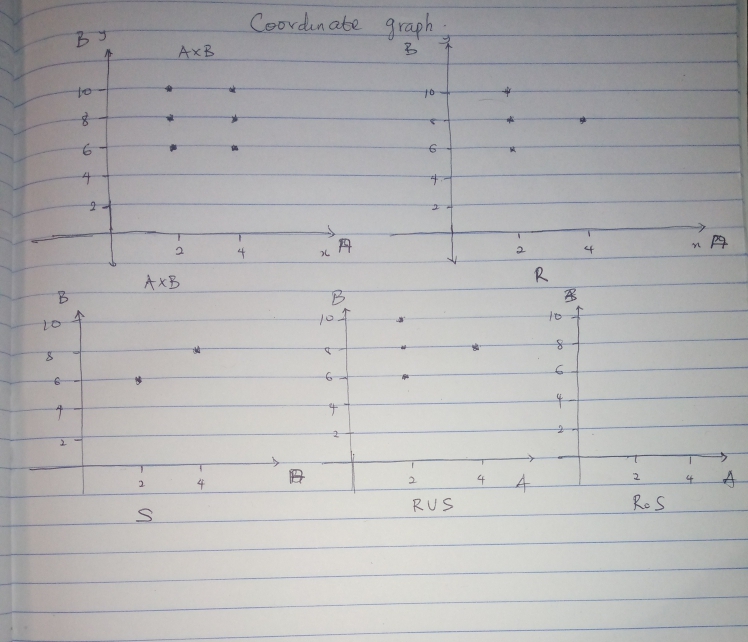 Coordinate graph.
B y
A×B
10
8
6
4
2
2 4 x A
A×B
B y
10
8
6
4
2
2 4 x A
R
B
10
8
6
4
2
2 4
S
B
10
8
6
4
2
2 4 A
R∪S
B
10
8
6
4
2
2 4 A
R∘S